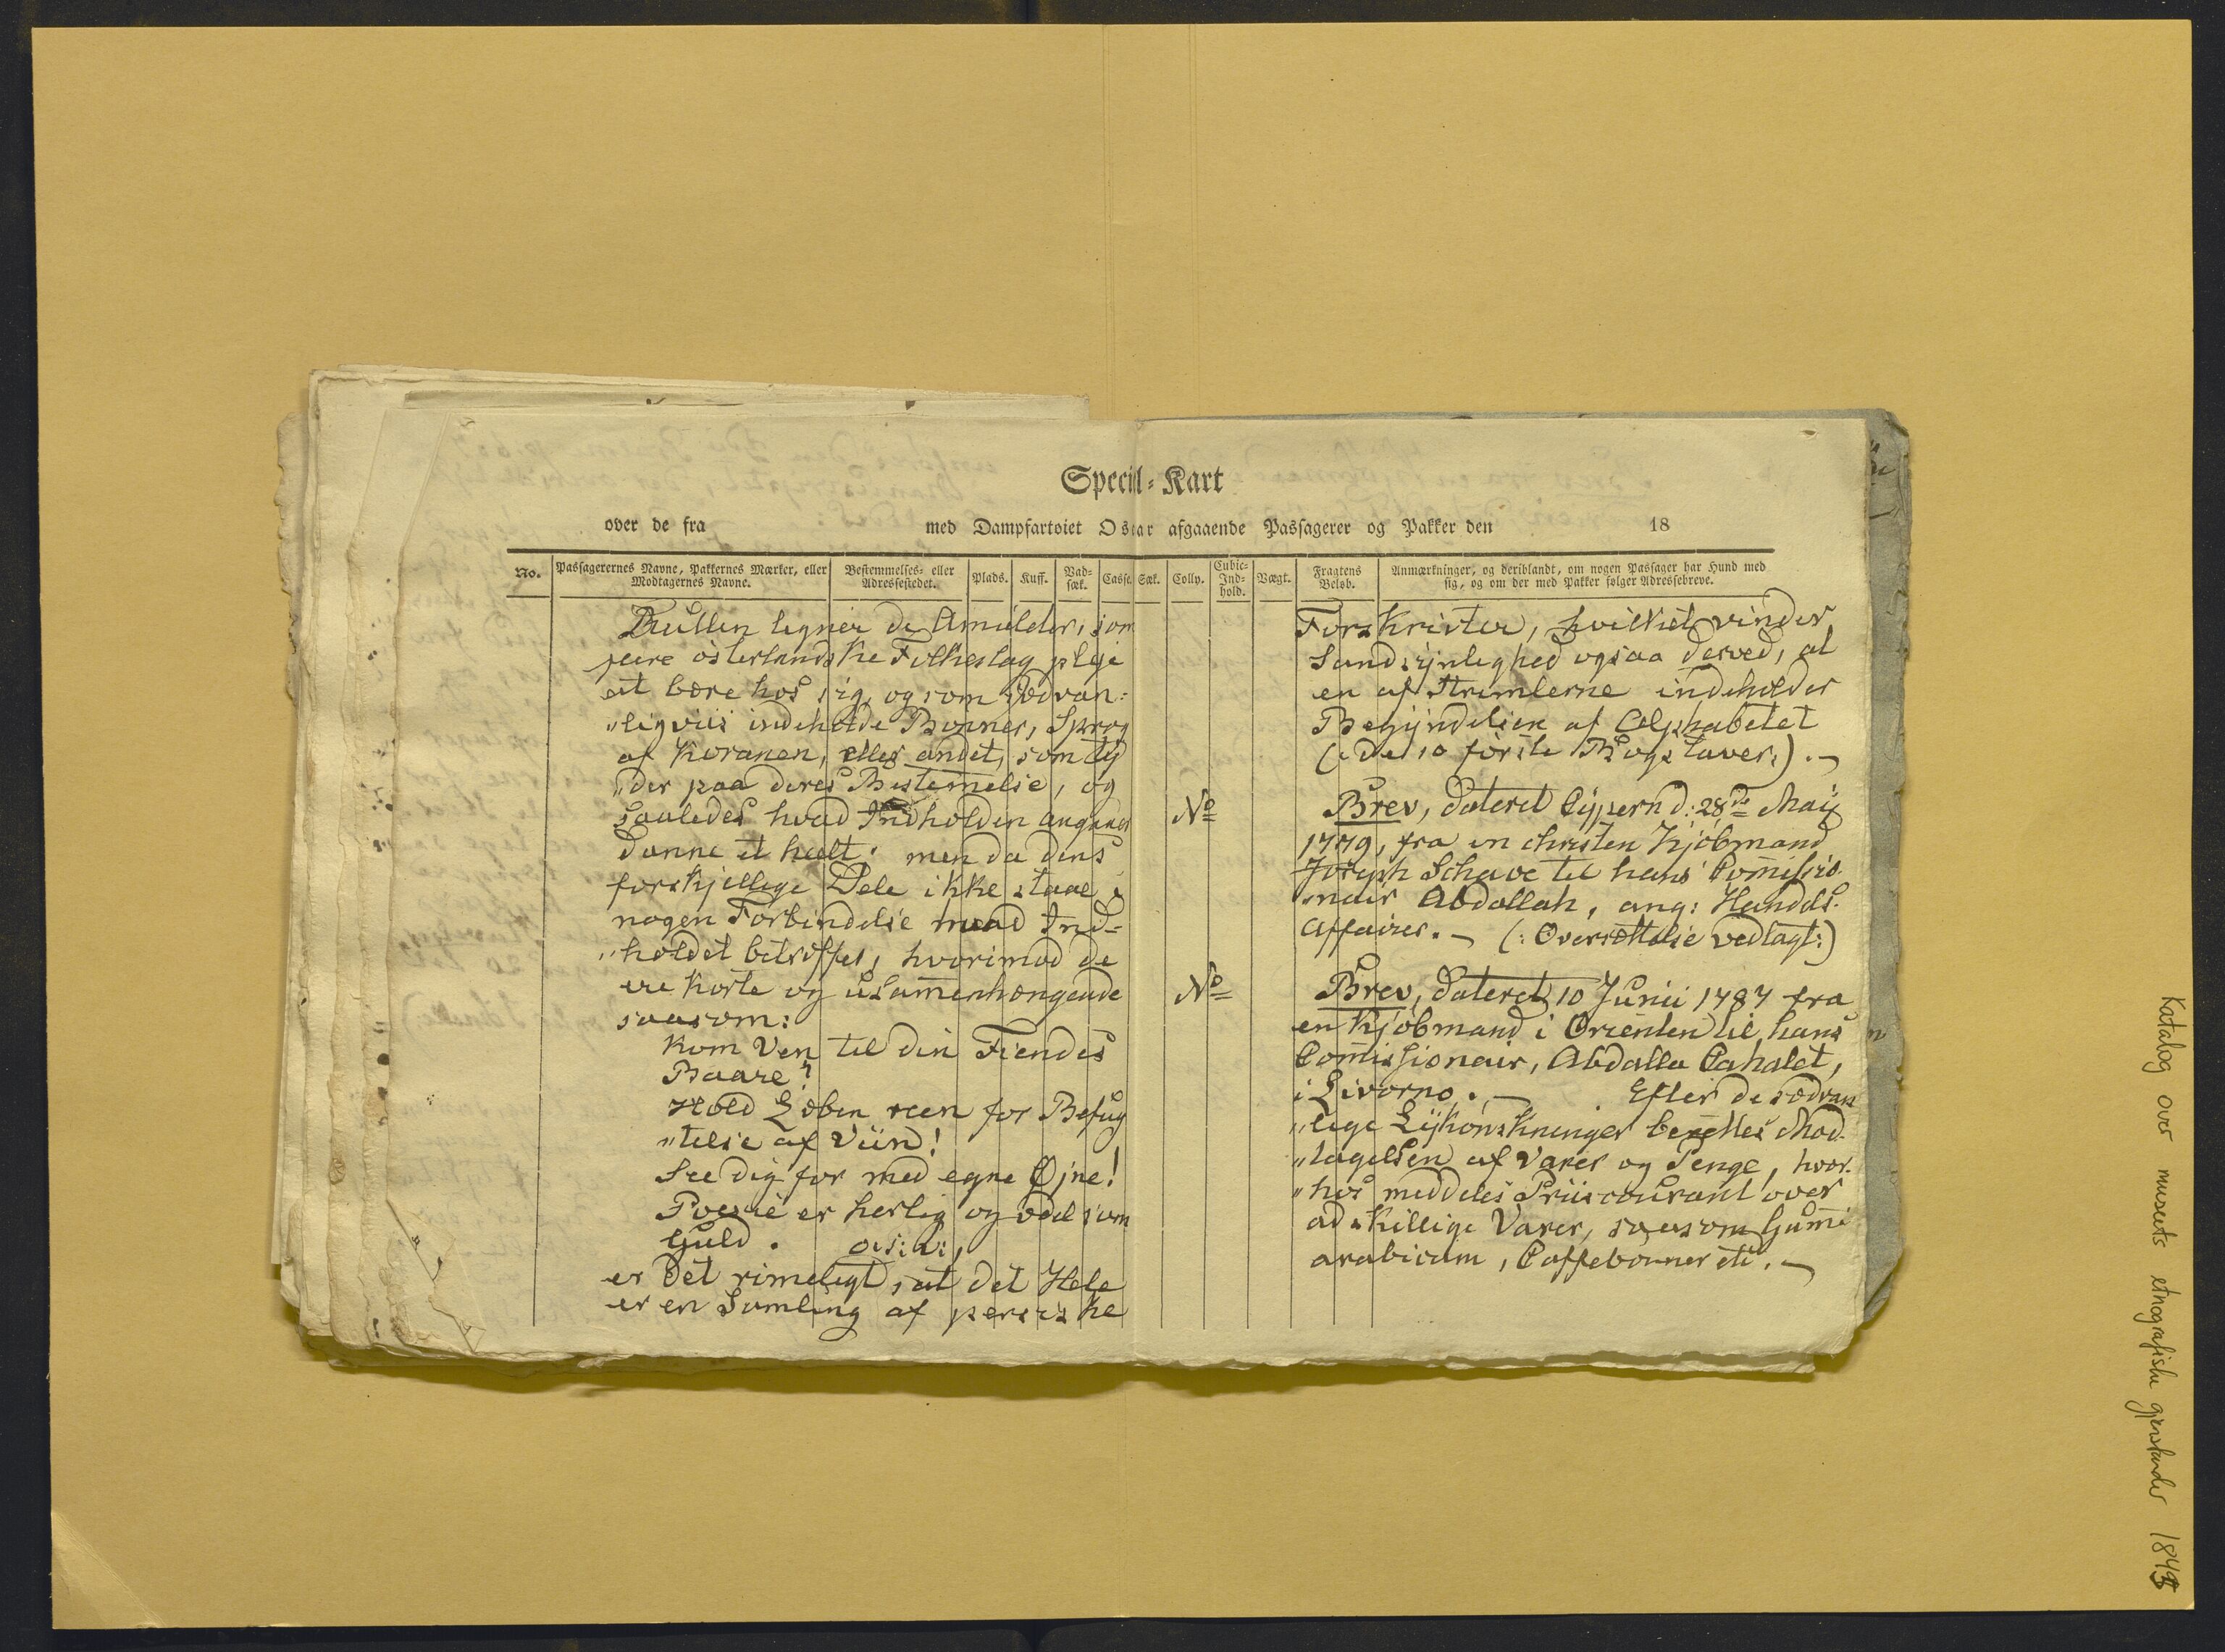 Special-Kart
over de fra med Dampfartøiet Oscar afgaaende Passagerer og Pakker den 18
No. Passagerernes Navne, Pakkernes Mærker, eller Modtagernes Navne. Bestemmelses- eller Adressestedet. Plads. Kuff. Vad-sæk. Casse. Sæk. Colly. Cubic-Ind-hold. Vægt. Fragtens Beløb. Anmærkninger, og deriblandt, om nogen Passager har Hund med sig, og om der med Pakker følger Adressebreve.
Rullen ligner de Amuleter, som
flere österlandske Folkeslag pleje
at bære hos sig, og som sædvan:
„ligviis indeholde Bønner, Sprog
af Koranen, eller andet, som ty
„der paa deres Bestem̅else, og
saaledes hvad Indholden angaaer
danne et heelt: men da dens
forskjellige Dele ikke staae i
nogen Forbindelse hvad Ind-
„holdet betræffer, hvorimod de
ere korte og usam̅enhængende
saasom:
Kom Ven til din Fiendes
Baare?
Hold Læben reen for Befug
„telse af Viin!
See dig for med egne Øjne!
Poesie er herlig og ædel som
Guld. o: s: v:,
er det rimeligt, at det Hele
er en Samling af persiske
Forskrivter, hvilket vinder
Sandsynlighed ogsaa derved, at
en af Strimlerne indeholder
Begyndelsen af Alphabetet
(: de 10 förste Bogstaver:). -
No Brev, dateret Cypern d: 28de Maij
1779, fra en christen Kjöbmand
Joseph Schave til hans Com̅issio-
„nair Abdallah, ang: Handels-
Affairer. - (: Oversættelse vedlagt:)
No Brev, dateret 10 Junii 1787 fra
en Kjöbmand i Orienten til hans
Com̅issionair, Abdalla Cahalet,
i Livorno. - Efter de sædvan
„lige Lykönskninger berettes Mod-
„tagelsen af Varer og Penge, hvor-
„hos meddeles Priiscourant over
adskillige Varer, saasom Gum̅i
arabicum, Caffebönner etc. -
Katalog over museets etnografiske gjenstander 1845